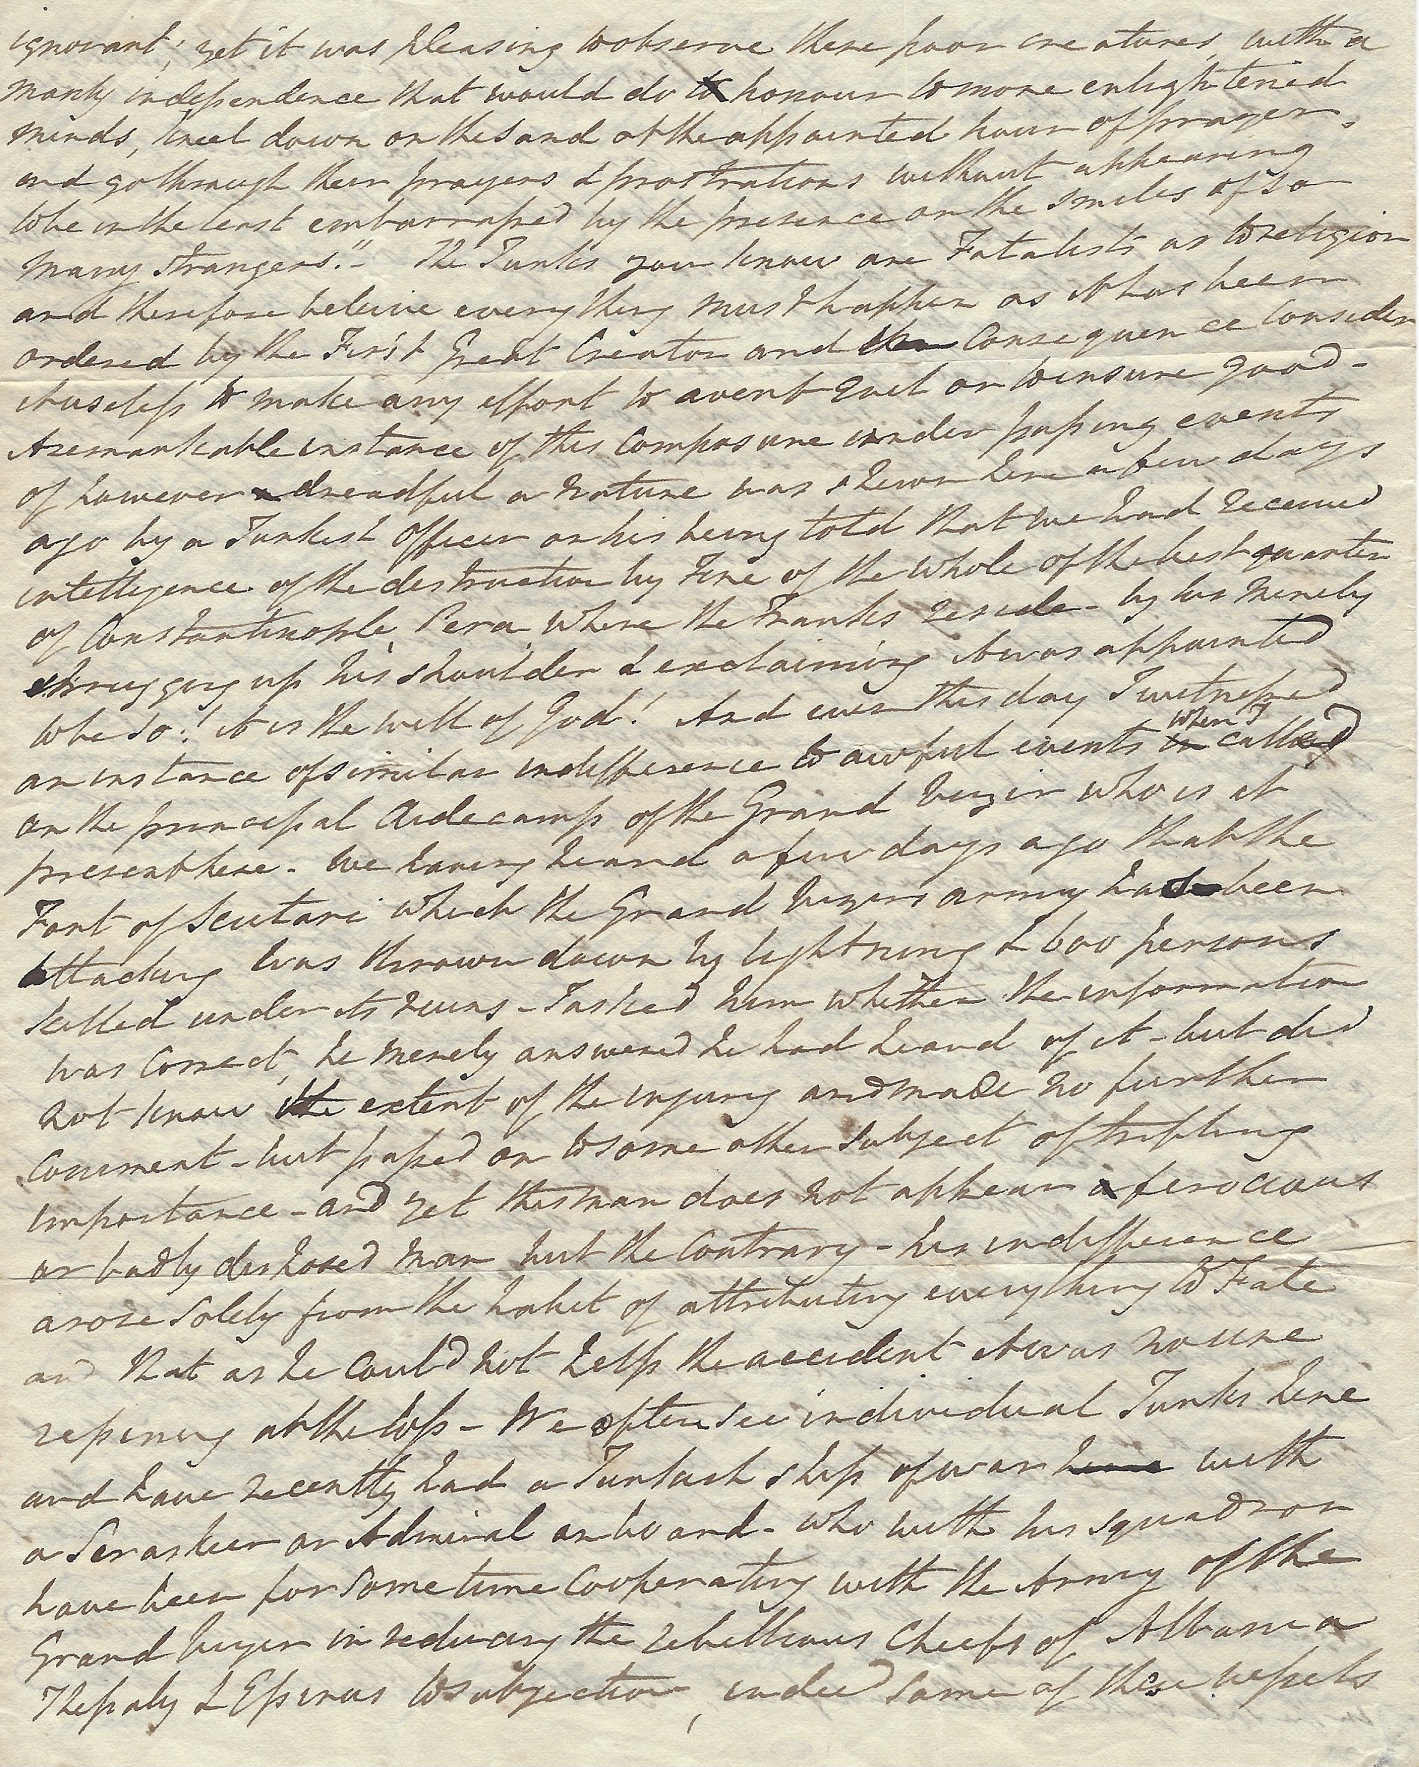 ignorant; yet it was pleasing to observe these poor creatures, with a
manly independence that would do honour to more enlightened
minds, kneel down on the sand at the appointed hour of prayer,
and go through their prayers & prostrations without appearing
to be in the least embarrassed by the presence or the smiles of so
many strangers." The Turks you know are Fatalists as to religion
and therefore beleive everything must happen as it has been
ordered by the First Great Creator and Consequence Consider
it useless to make any effort to avert evil or to insure good -
A remarkable instance of this Composure under passing events
of however dreadful a nature was shewn here a few days
ago by a Turkish Officer on his being told that we had received
intelligence of the destruction by Fire of the whole of the best quarter
of Constantinople, Pera where the Franks reside - by his merely
shrugging up his shoulder & exclaiming it was appointed
to be so! it is the will of God! And even this day I witnessed
an instance of similar indifference to awful events when I called
on the principal Aidecamp of the Grand Vezir who is at
present here - We having heard a few days ago that the
Fort of Scutari which the Grand Vezirs army had been
attacking was thrown down by lightning & 600 persons
killed under its ruins - I asked him whether the information
was Correct, he merely answered he had heard of it - but did
not know the extent of the injury and made no further
Comment - but passed on to some other subject of trifling
importance - and yet this man does not appear a ferocious
or badly disposed man but the Contrary - his indifference
arose solely from the habit of attributing everything to Fate
and that as he could not help the accident it was no use
repining at the loss - We often see individual Turks here
and have recently had a Turkish ship of war here with
a Seraskier or Admiral on board - who with his squadron
have been for some time Cooperating with the Army of the
Grand Vezier in reducing the rebellious Chiefs of Albania
Thessaly & Epirus to subjection, indeed some of these vessels